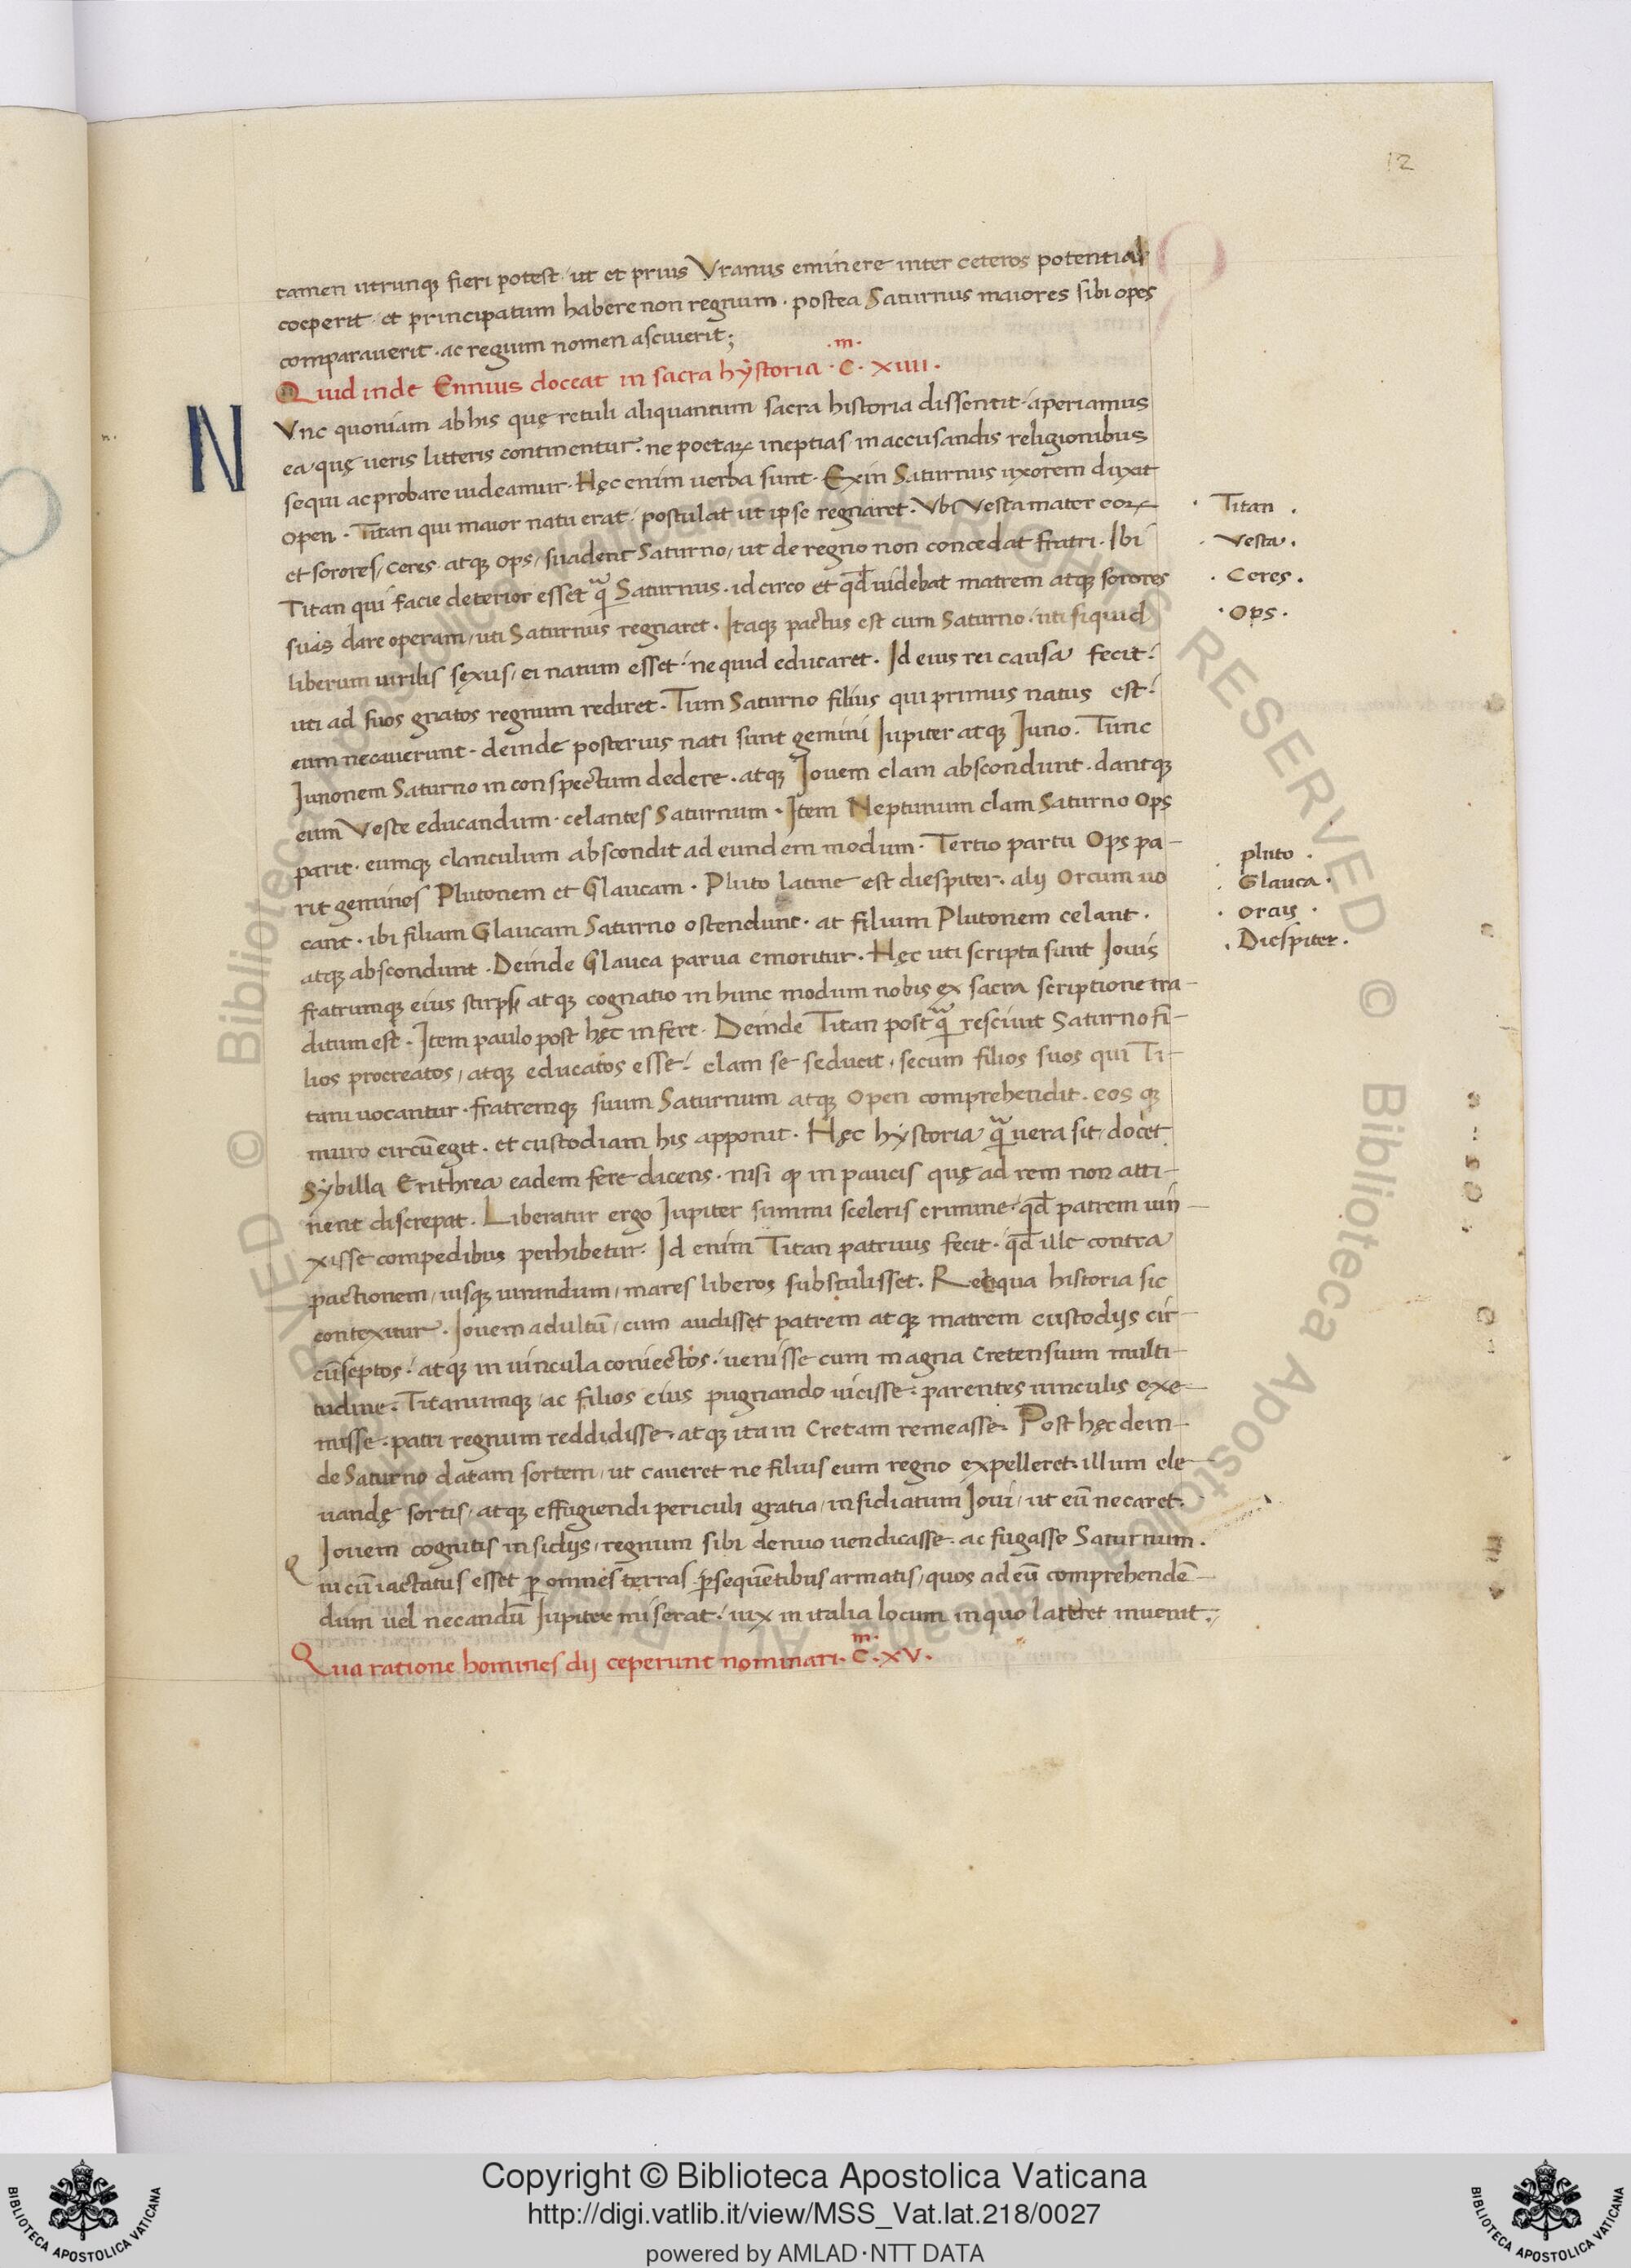 12
tamen utrunq; fieri potest. ut et prius Vranus eminere inter ceteros potentia
coeperit. et principatum habere non regnum. postea Saturnus maiores sibi opes
comparauerit. ac regium nomen asciuerit;
Quid inde Ennius doceat in sacra hystoria. C.m XIIII.
NVnc quoniam ab his quę retuli aliquantum sacra historia dissentit. aperiamus
ea quę ueris litteris continentur. ne poetaꝝ ineptias in accusandis religionibus
sequi ac probare uideamur. Hęc enim uerba sunt. Exin Saturnus uxorem duxit
Open. Titan qui maior natu erat, postulat ut ipse regnaret. Vbi Vesta mater eoꝝ
et sorores, Ceres. atq; Ops, suadent Saturno, ut de regno non concedat fratri. Ibi
Titan qui facie deterior esset qͣ Saturnus. idcirco et qd̄ uidebat matrem atq; sorores
suas dare operam, uti Saturnus regnaret. Itaq; pactus est cum Saturno. uti siquid
liberum uirilis sęxus, ei natum esset. nequid educaret. Id eius rei causa fecit.
uti ad suos gnatos regnum rediret. Tum Saturno filius qui primus natus est.
eum necauerunt. deinde posterius nati sunt gemini Iupiter atq; Iuno. Tunc
Iunonem Saturno in conspectum dedere. atq; Iouem clam abscondunt. dantq;
eum Veste educandum. celantes Saturnum. Item Neptunum clam Saturno Ops
parit. eumq; clanculum abscondit ad eundem modum. Tertio partu Ops pa-
rit geminos Plutonem et Glaucam. Pluto latine est diespiter. alij Orcum uo
cant. ibi filiam Glaucam Saturno ostendunt. at filium Plutonem celant.
atq; abscondunt. Deinde Glauca parua emoritur. Hęc uti scripta sunt Iouis
fratrumq; eius stirps atq; cognatio in hunc modum nobis ex sacra scriptione tra-
ditum est. Item paulo post hęc infert. Deinde Titan postqͣ resciuit Saturno fi-
lios procreatos, atq; educatos esse. clam se seducit. secum filios suos qui Ti-
tani uocantur. fratremq; suum Saturnum atq; Open comprehendit. eos q;
muro circūegit. et custodiam his apponit. Hęc hystoria qͣ uera sit, docet
Sybilla Erithrea eadem fere dicens. nisi ꝙ in paucis quę ad rem non atti-
nent discrepat. Liberatur ergo Iupiter summi sceleris crimine. qd̄ patrem uin-
xisse compedibus perhibetur. Id enim Titan patruus fecit. qd̄ ille contra
pactionem, iusq; iurandum, mares liberos substulisset. Reliqua historia sic
contexitur. Iouem adultū, cum audisset patrem atq; matrem custodijs cir-
cūseptos. atq; in uincula coniectos. uenisse cum magna Cretensium multi-
tudine. Titanumq; ac filios eius pugnando uicisse. parentes uinculis exe-
misse. patri regnum reddidisse. atq; ita in Cretam remeasse. Post hęc dein-
de Saturno datam sortem, ut caueret ne filius eum regno expelleret. illum ele-
uandę sortis, atq; effugiendi periculi gratia, insidiatum Ioui, ut eū necaret.
Iouem cognitis insidijs, regnum sibi denuo uendicasse. ac fugasse Saturnum.
Qui cū iactatus esset ꝑ omnes terras ꝑsequētibus armatis, quos ad eū comprehendē-
dum uel necandū Iupiter miserat. uix in italia locum inquo lateret inuenit.
Qua ratione homines dij ceperunt nominari. C.m XV.
n.
. Titan .
. Vesta .
. Ceres .
. Ops .
. pluto .
. Glauca .
. orcus .
. Diespiter .
Copyright © Biblioteca Apostolica Vaticana
http://digi.vatlib.it/view/MSS_Vat.lat.218/0027
powered by AMLAD·NTT DATA
BIBLIOTECA APOSTOLICA VATICANA
BIBLIOTECA APOSTOLICA VATICANA